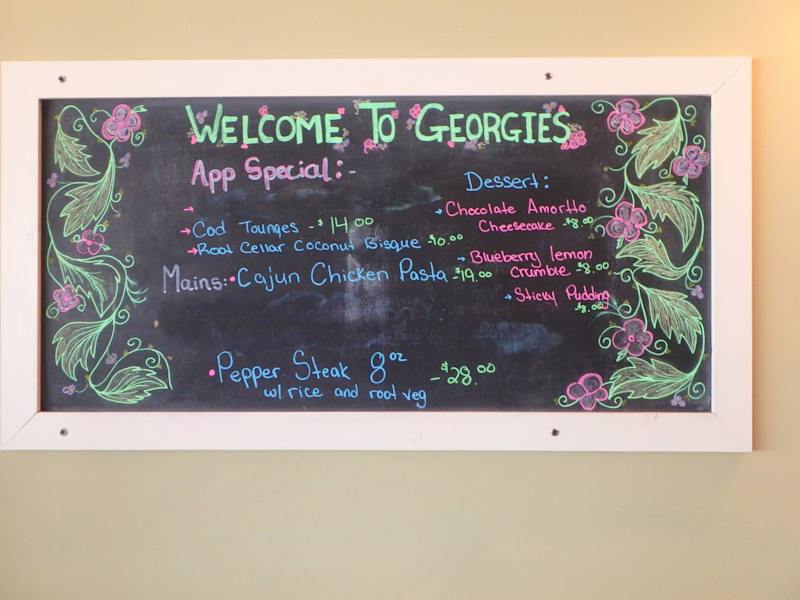 WELCOME TO GEORGIES
App Special:-
Cod Tounges - $14.00
Root Cellar Coconut Bisque -$10.00
Mains: Cajun Chicken Pasta -$19.00
Pepper Steak 8oz -$28.00
w/ rice and root veg
Dessert:
Chocolate Amortto
Cheesecake -$8.00
Blueberry lemon
crumble -$8.00
Sticky Pudding
-$8.00